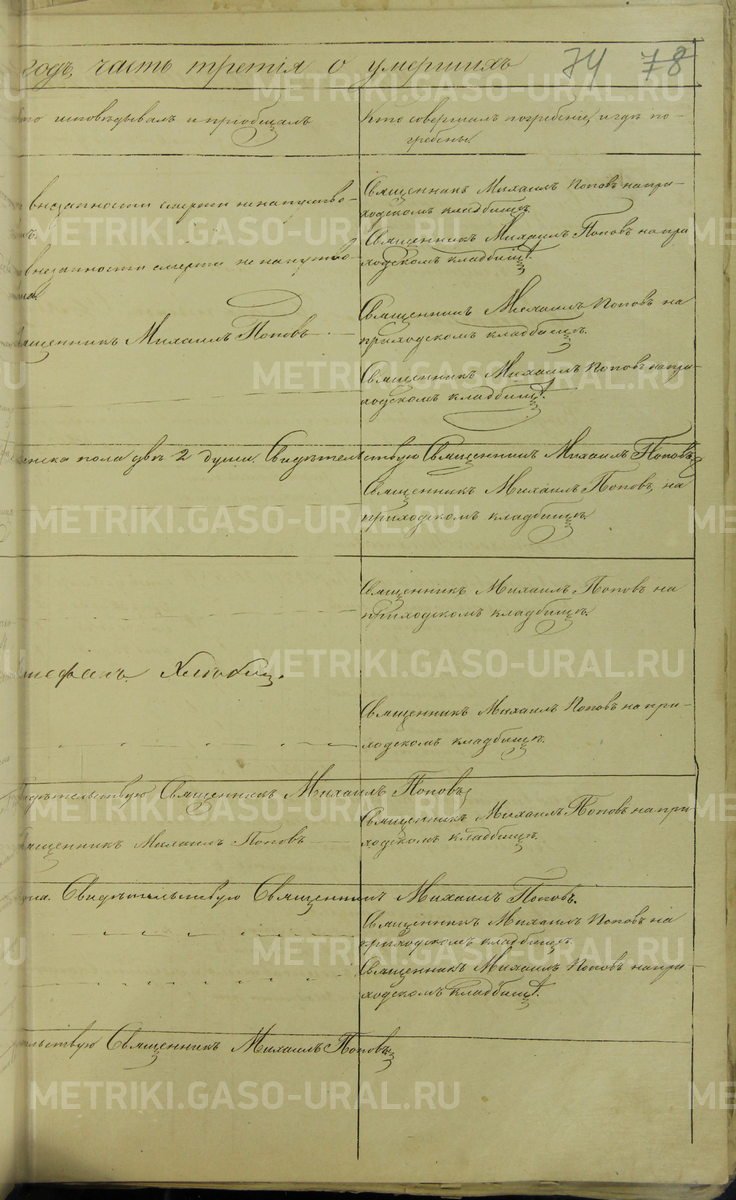 годъ, часть третія о умершихъ 74 78
исповѣдывалъ и пріобщалъ
Кто совершалъ погребеніе, и гдѣ по-
гребены.
внезапности смерти ненапутство-
Священникъ Михаилъ Поповъ на при-
ходскомъ кладбищѣ.
Священникъ Михаилъ Поповъ на при
ходскомъ кладбищѣ.
внезапности смерти не напутство
Священникъ Михаилъ Поповъ на
приходскомъ кладбищѣ.
ященникъ Михаилъ Поповъ
Священникъ Михаилъ Поповъ на при-
ходскомъ кладбищѣ.
женска пола двѣ 2 души. Свидѣтельствую Священникъ Михаилъ Поповъ
Священникъ Михаилъ Поповъ, на
приходскомъ кладбищѣ
Священникъ Михаилъ Поповъ на
приходскомъ кладбищѣ.
Священникъ Михаилъ Поповъ на при-
ходскомъ кладбищѣ.
идѣтельствую Священникъ Михаилъ Поповъ
Священникъ Михаилъ Поповъ на при
ходскомъ кладбищѣ.
ященникъ Михаилъ Поповъ
Свидѣтельствую Священникъ Михаилъ Поповъ.
Священникъ Михаилъ Поповъ на
приходскомъ кладбищѣ.
Священникъ Михаилъ Поповъ на при-
ходскомъ кладбищѣ.
ельствую Священникъ Михаилъ Поповъ
METRIKI.GASO-URAL.RU